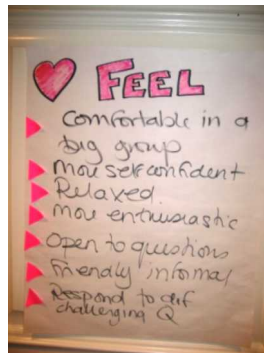 FEEL
comfortable in a
big group
More self confident
Relaxed.
More enthusiastic
Open to questions
friendly informal
Respond to dif
challenging Q